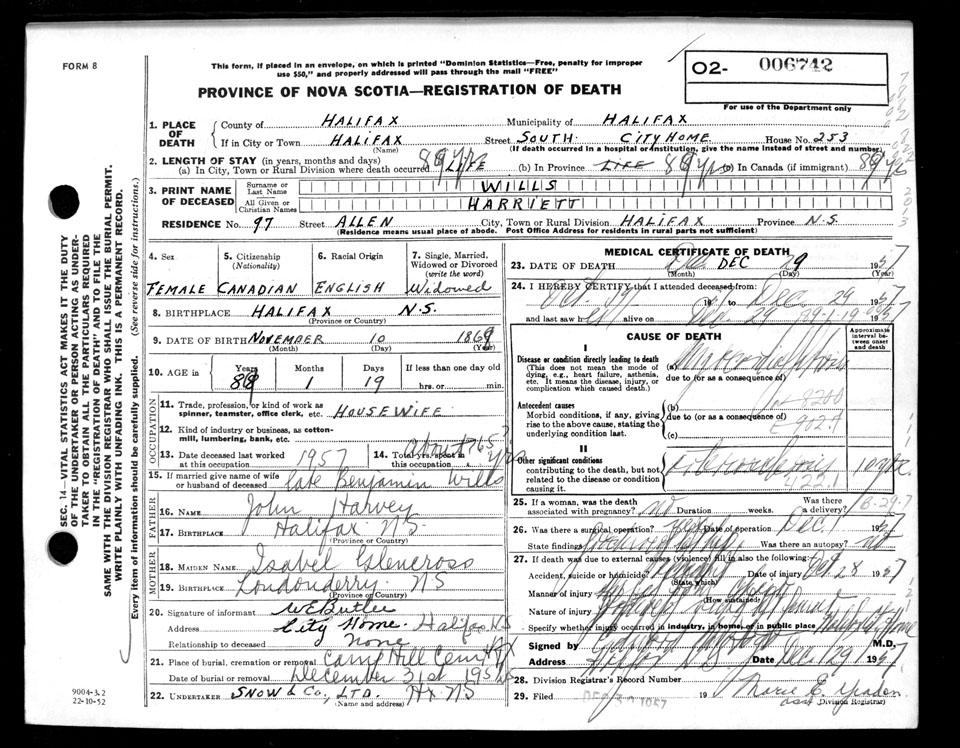 FORM 8
This form, if placed in an envelope, on which is printed "Dominion Statistics—Free, penalty for improper
use $50," and properly addressed will pass through the mail "FREE"
PROVINCE OF NOVA SCOTIA—REGISTRATION OF DEATH
O2- 006742
For use of the Department only
1. PLACE OF DEATH
County of HALIFAX Municipality of HALIFAX
If in City or Town HALIFAX Street SOUTH. CITY HOME House No. 253
(Name) (If death occurred in a hospital or institution, give the name instead of street and number)
2. LENGTH OF STAY (in years, months and days)
(a) In City, Town or Rural Division where death occurred LIFE (b) In Province LIFE (c) In Canada (if immigrant)
3. PRINT NAME OF DECEASED
Surname or Last Name WILLS
All Given or Christian Names HARRIETT
RESIDENCE No. 97 Street ALLEN City, Town or Rural Division HALIFAX Province N.S.
(Residence means usual place of abode. Post Office Address for residents in rural parts not sufficient)
4. Sex 5. Citizenship (Nationality) 6. Racial Origin 7. Single, Married, Widowed or Divorced (write the word)
FEMALE CANADIAN ENGLISH Widowed
8. BIRTHPLACE HALIFAX N.S.
(Province or Country)
9. DATE OF BIRTH NOVEMBER 10 186
(Month) (Day) (Year)
10. AGE Years Months Days If less than one day old
1 19 hrs. or min.
OCCUPATION
11. Trade, profession, or kind of work as spinner, teamster, office clerk, etc. HOUSEWIFE
12. Kind of industry or business, as cotton-mill, lumbering, bank, etc.
13. Date deceased last worked at this occupation 1957
14. Total years spent in this occupation about 65 yrs
15. If married give name of wife or husband of deceased late Benjamin Wills
FATHER
16. NAME John Harvey
17. BIRTHPLACE Halifax NS
(Province or Country)
MOTHER
18. MAIDEN NAME Isabel Glencross
19. BIRTHPLACE Londonderry NS
(Province or Country)
20. Signature of informant W E Butler
Address City Home. Halifax NS
Relationship to deceased None
21. Place of burial, cremation or removal Camp Hill Cem Hfx
Date of burial or removal December 31st 1957
22. UNDERTAKER SNOW & Co., LTD. Hx NS
(Name and address)
MEDICAL CERTIFICATE OF DEATH
23. DATE OF DEATH DEC 29 1957
(Month) (Day) (Year)
24. I HEREBY CERTIFY that I attended deceased from:
to Dec 29 1957
and last saw her alive on Dec. 29 1957
CAUSE OF DEATH
Approximate interval between onset and death
I
Disease or condition directly leading to death
(This does not mean the mode of dying, e.g., heart failure, asthenia, etc. It means the disease, injury, or complication which caused death.)
(a)
due to (or as a consequence of)
Antecedent causes
Morbid conditions, if any, giving rise to the above cause, stating the underlying condition last.
(b)
due to (or as a consequence of)
(c)
E 902.7
II
Other significant conditions
contributing to the death, but not related to the disease or condition causing it.
422.1
25. If a woman, was the death associated with pregnancy? no Duration weeks. Was there a delivery?
26. Was there a surgical operation? yes Date of operation Dec. 1 1957
State findings Was there an autopsy? no
27. If death was due to external causes (violence) fill in also the following:
Accident, suicide or homicide? Date of injury Oct 28 1957
(State which)
Manner of injury
(How sustained)
Nature of injury
Specify whether injury occurred in industry, in home, or in public place
Signed by M.D.
Address Halifax N.S Date Dec. 29 1957
28. Division Registrar's Record Number
29. Filed DEC 30 1957 19 Marie E.
Division Registrar)
SEC. 14—VITAL STATISTICS ACT MAKES IT THE DUTY
OF THE UNDERTAKER OR PERSON ACTING AS UNDER-
TAKER TO OBTAIN ALL THE PARTICULARS REQUIRED
IN THE "REGISTRATION OF DEATH" AND TO FILE THE
SAME WITH THE DIVISION REGISTRAR WHO SHALL ISSUE THE BURIAL PERMIT.
WRITE PLAINLY WITH UNFADING INK. THIS IS A PERMANENT RECORD.
Every item of information should be carefully supplied. (See reverse side for instructions.)
9004-3.2
22-10-52